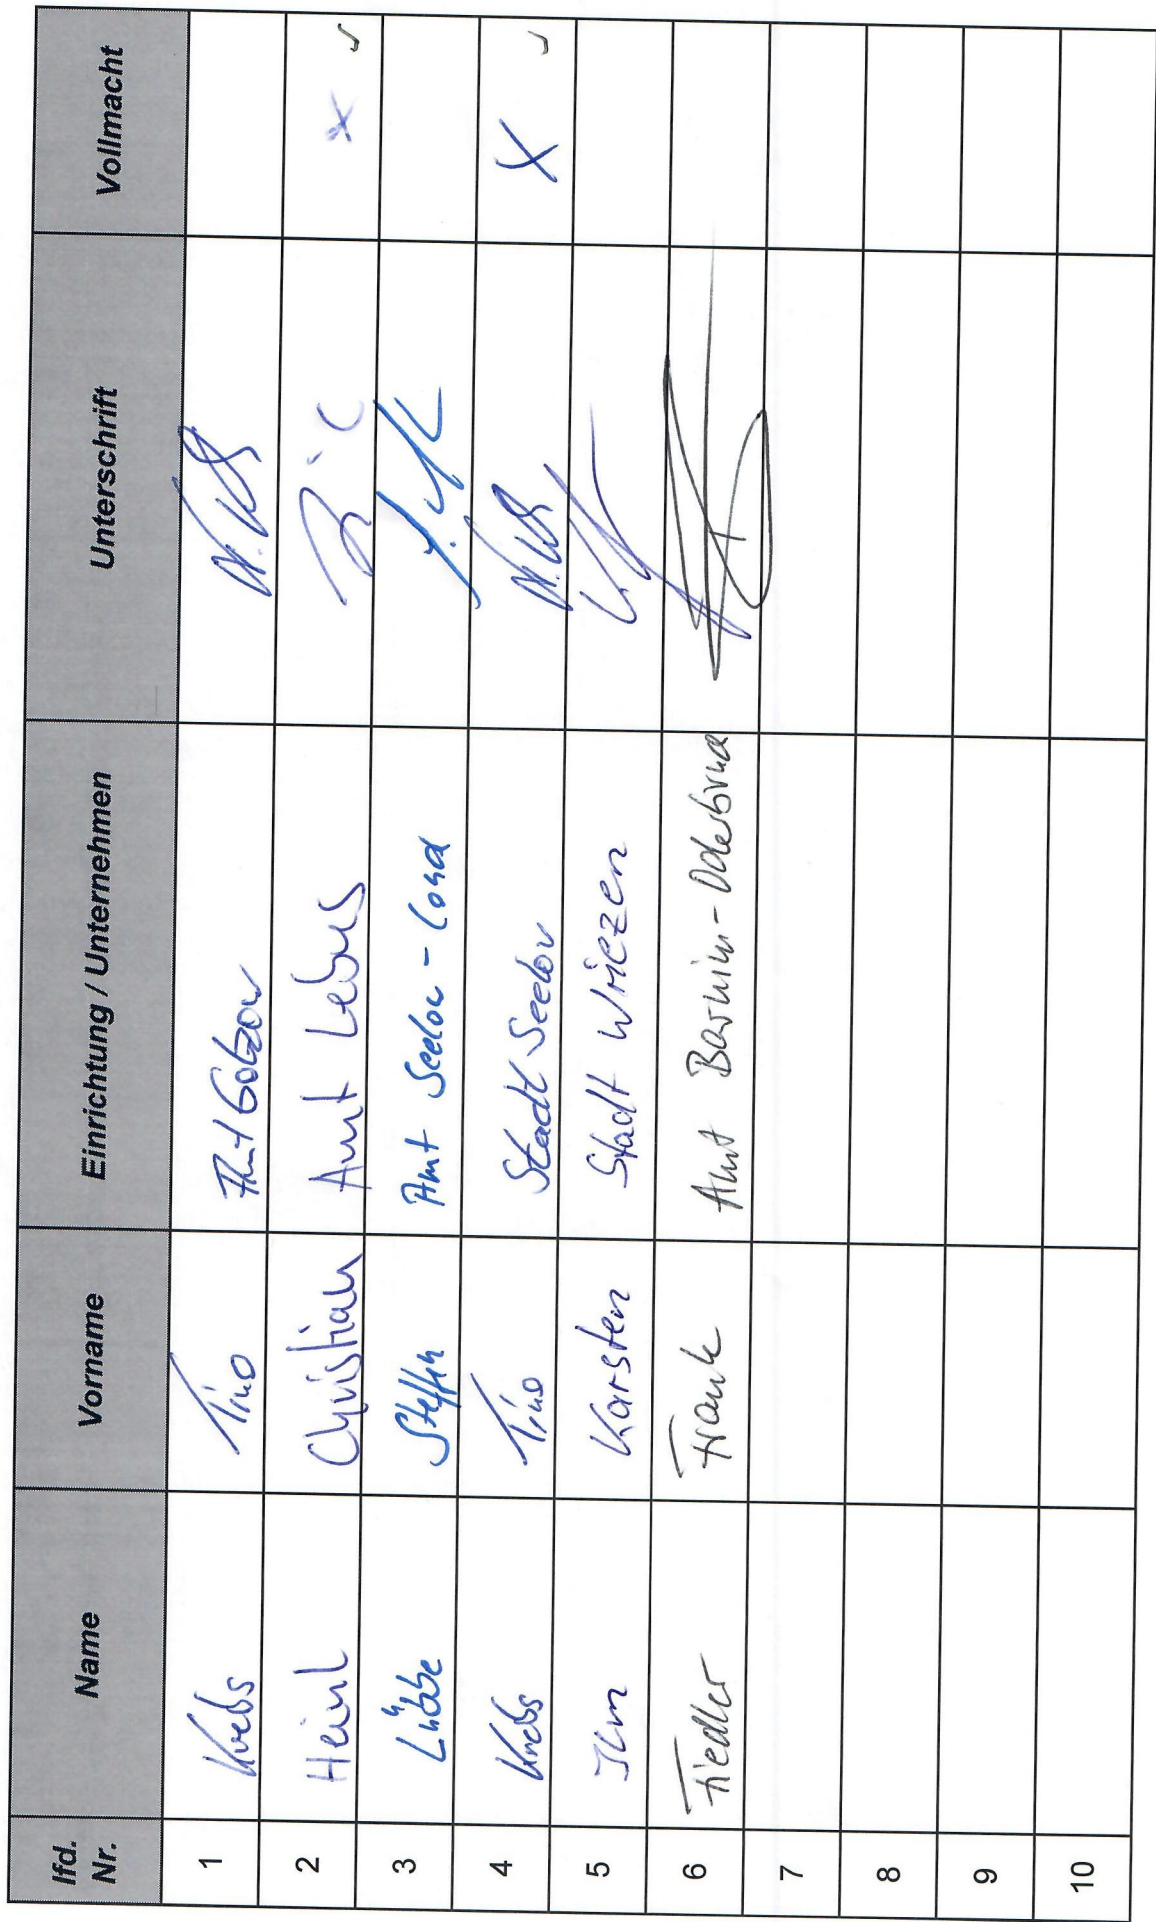 lfd. Nr. Name Vorname Einrichtung / Unternehmen Unterschrift Vollmacht
1 Krebs Tino Amt Golzow
2 Heinl Christian Amt Lebus x ✓
3 Lübbe Steffen Amt Seelow-Land
4 Krebs Tino Stadt Seelow X ✓
5 Ilm Karsten Stadt Wriezen
6 Fiedler Frank Amt Barnim-Oderbruch
7
8
9
10